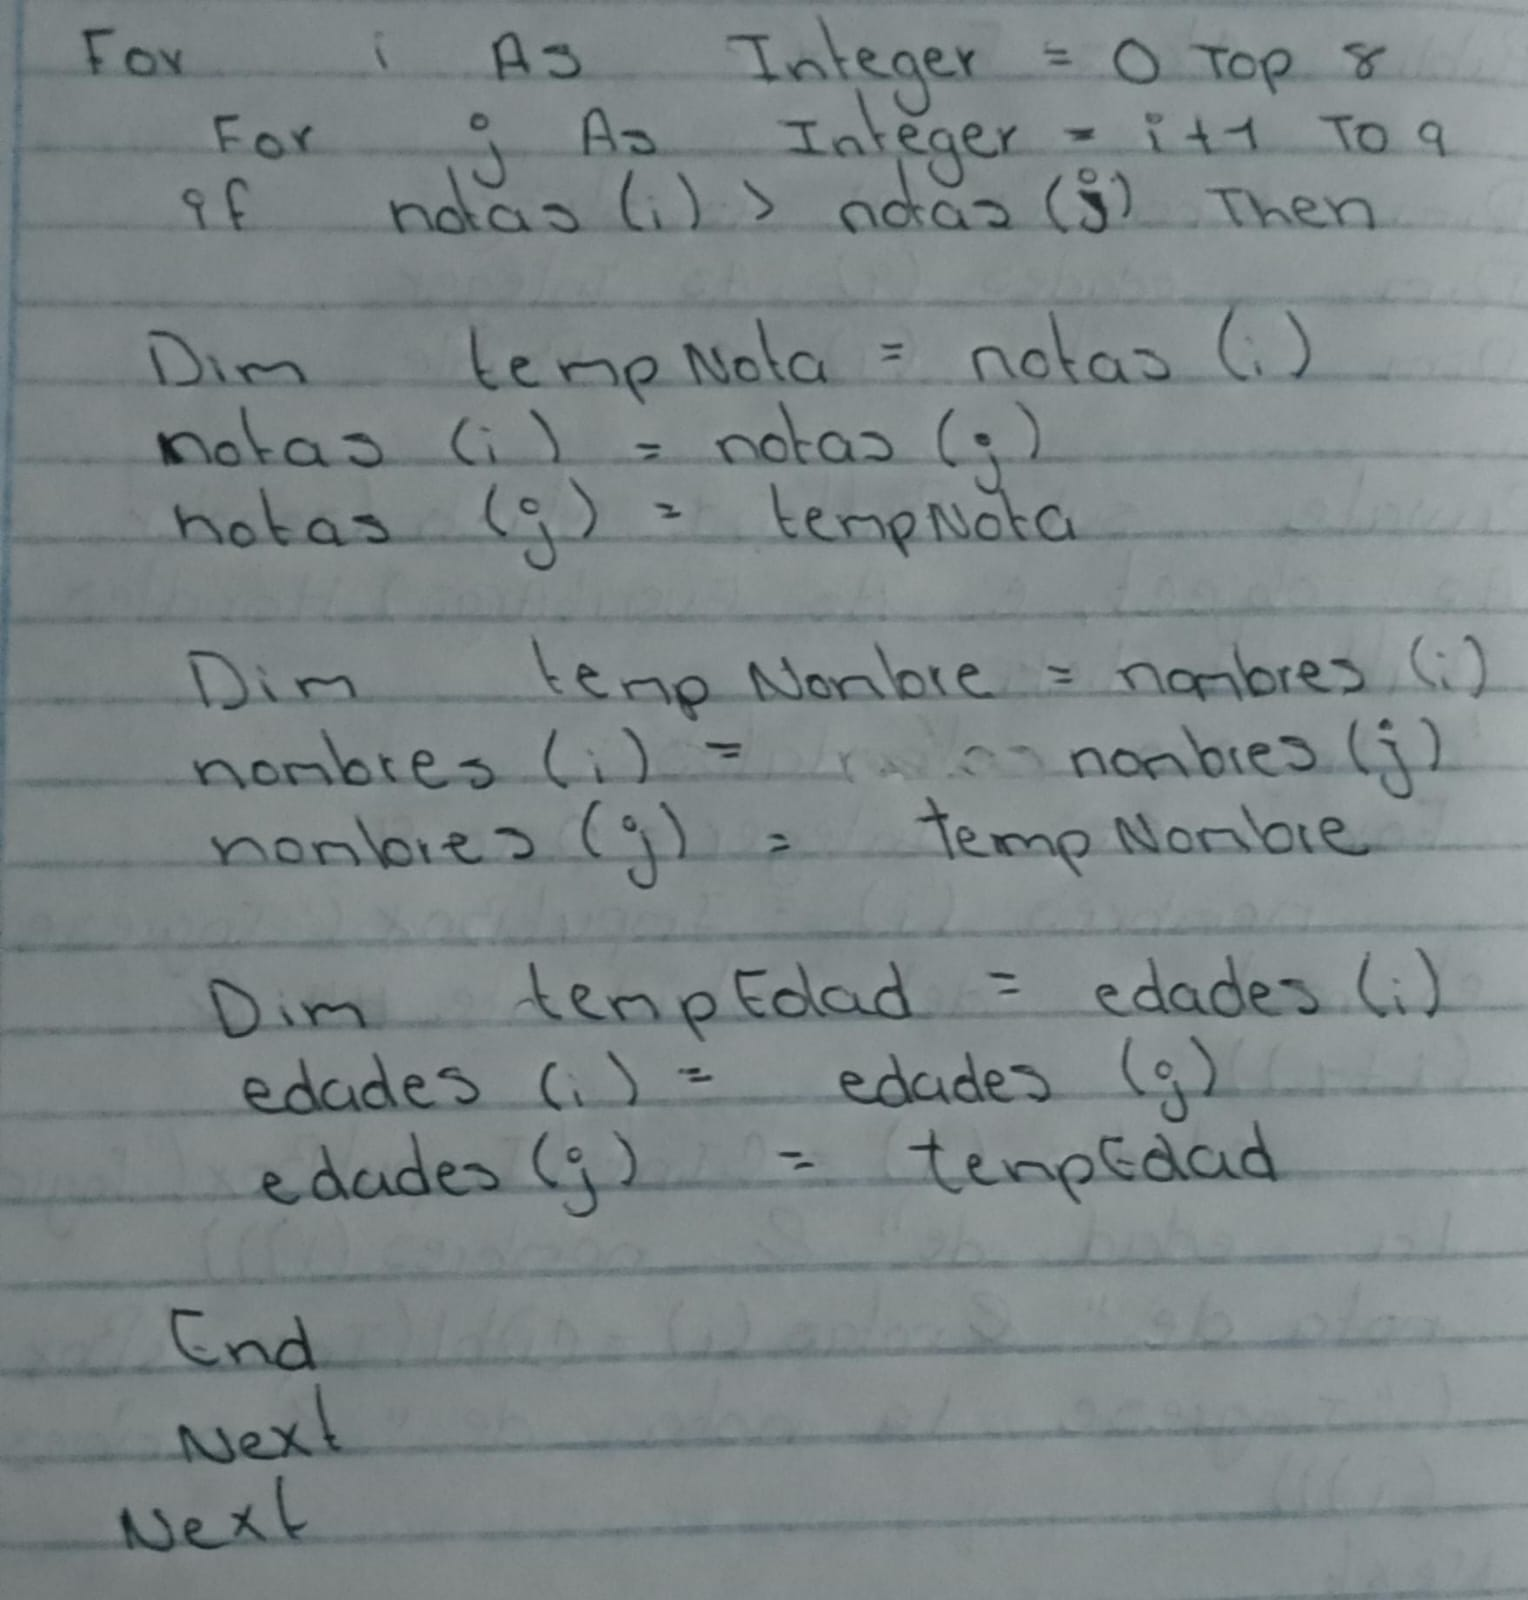 For i As Integer = 0 Top 8
For j As Integer = i+1 To 9
if notas (i) > notas (j) Then
Dim tempNota = notas (i)
notas (i) = notas (j)
notas (j) = tempNota
Dim tempNombre = nombres (i)
nombres (i) = nombres (j)
nombres (j) = tempNombre
Dim tempEdad = edades (i)
edades (i) = edades (j)
edades (j) = tempEdad
End
Next
Next